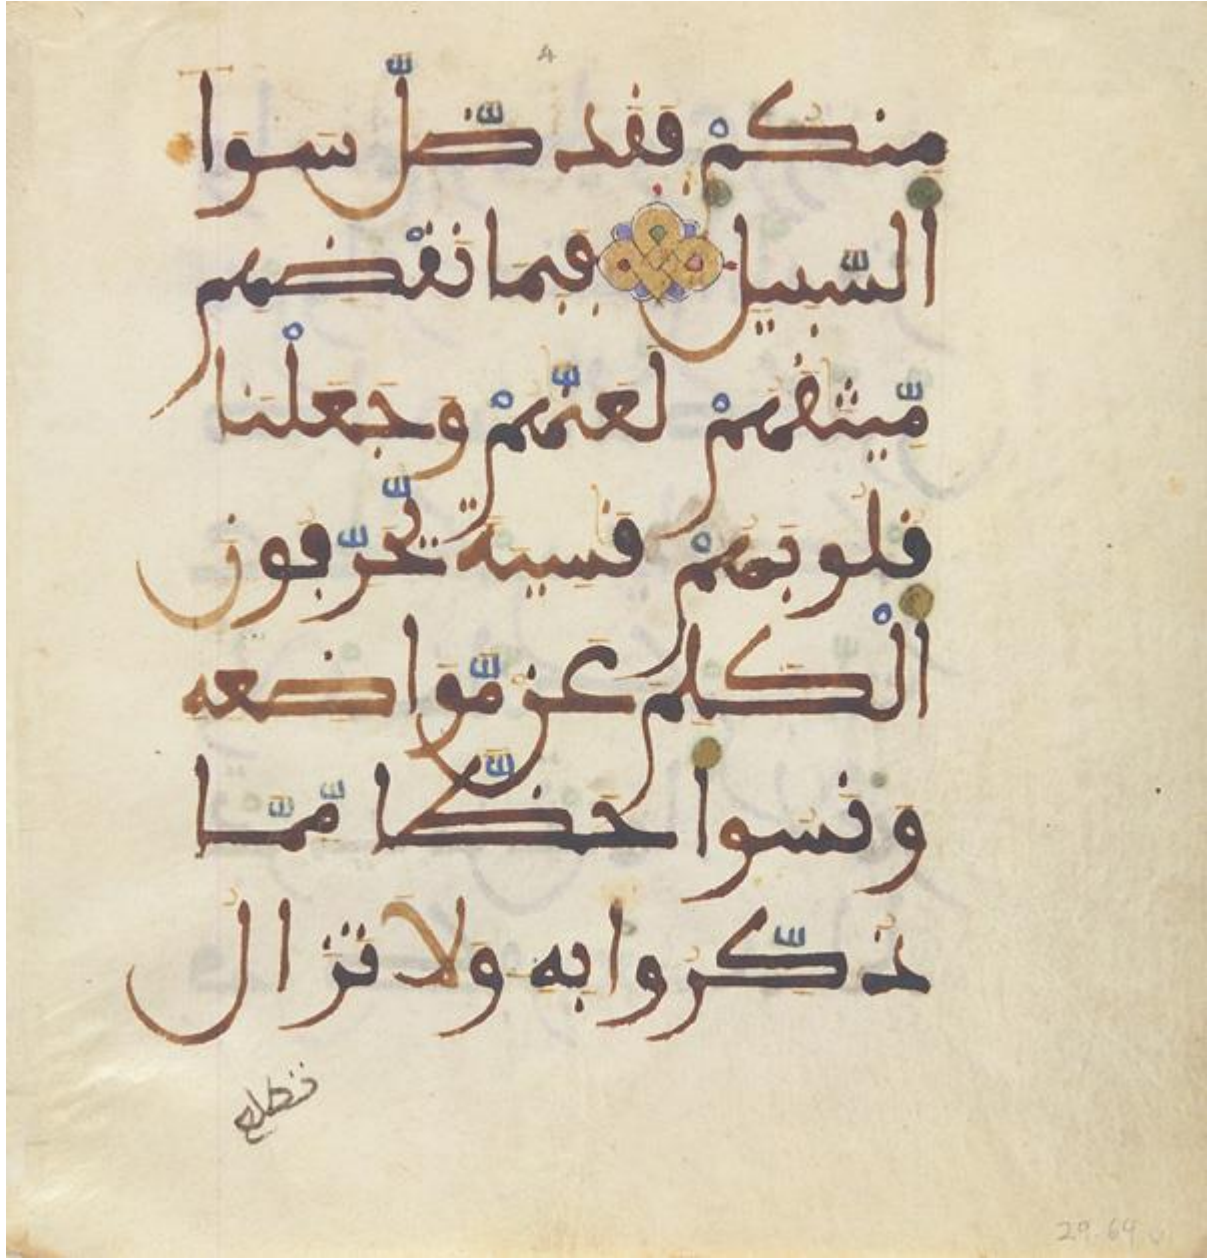 منكم فقد ضل سوا
السبيل فبما نقضهم
ميثقهم لعنهم وجعلنا
قلوبهم قسية يحرفون
الكلم عن مواضعه
ونسوا حظا مما
ذكروا به ولا تزال
تطلع
29.64